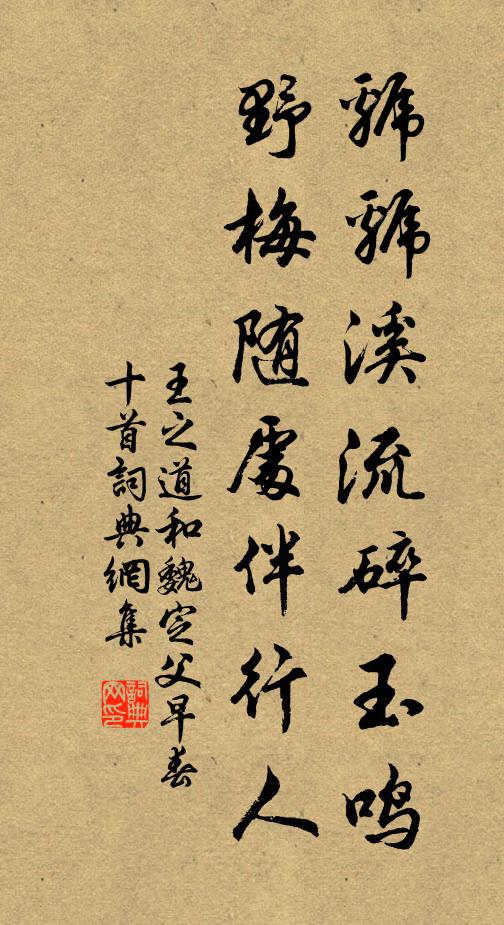 虢虢溪流碎玉鳴
野梅随處伴行人
王之道和魏定父早春
十首詞典網集
詞典网印